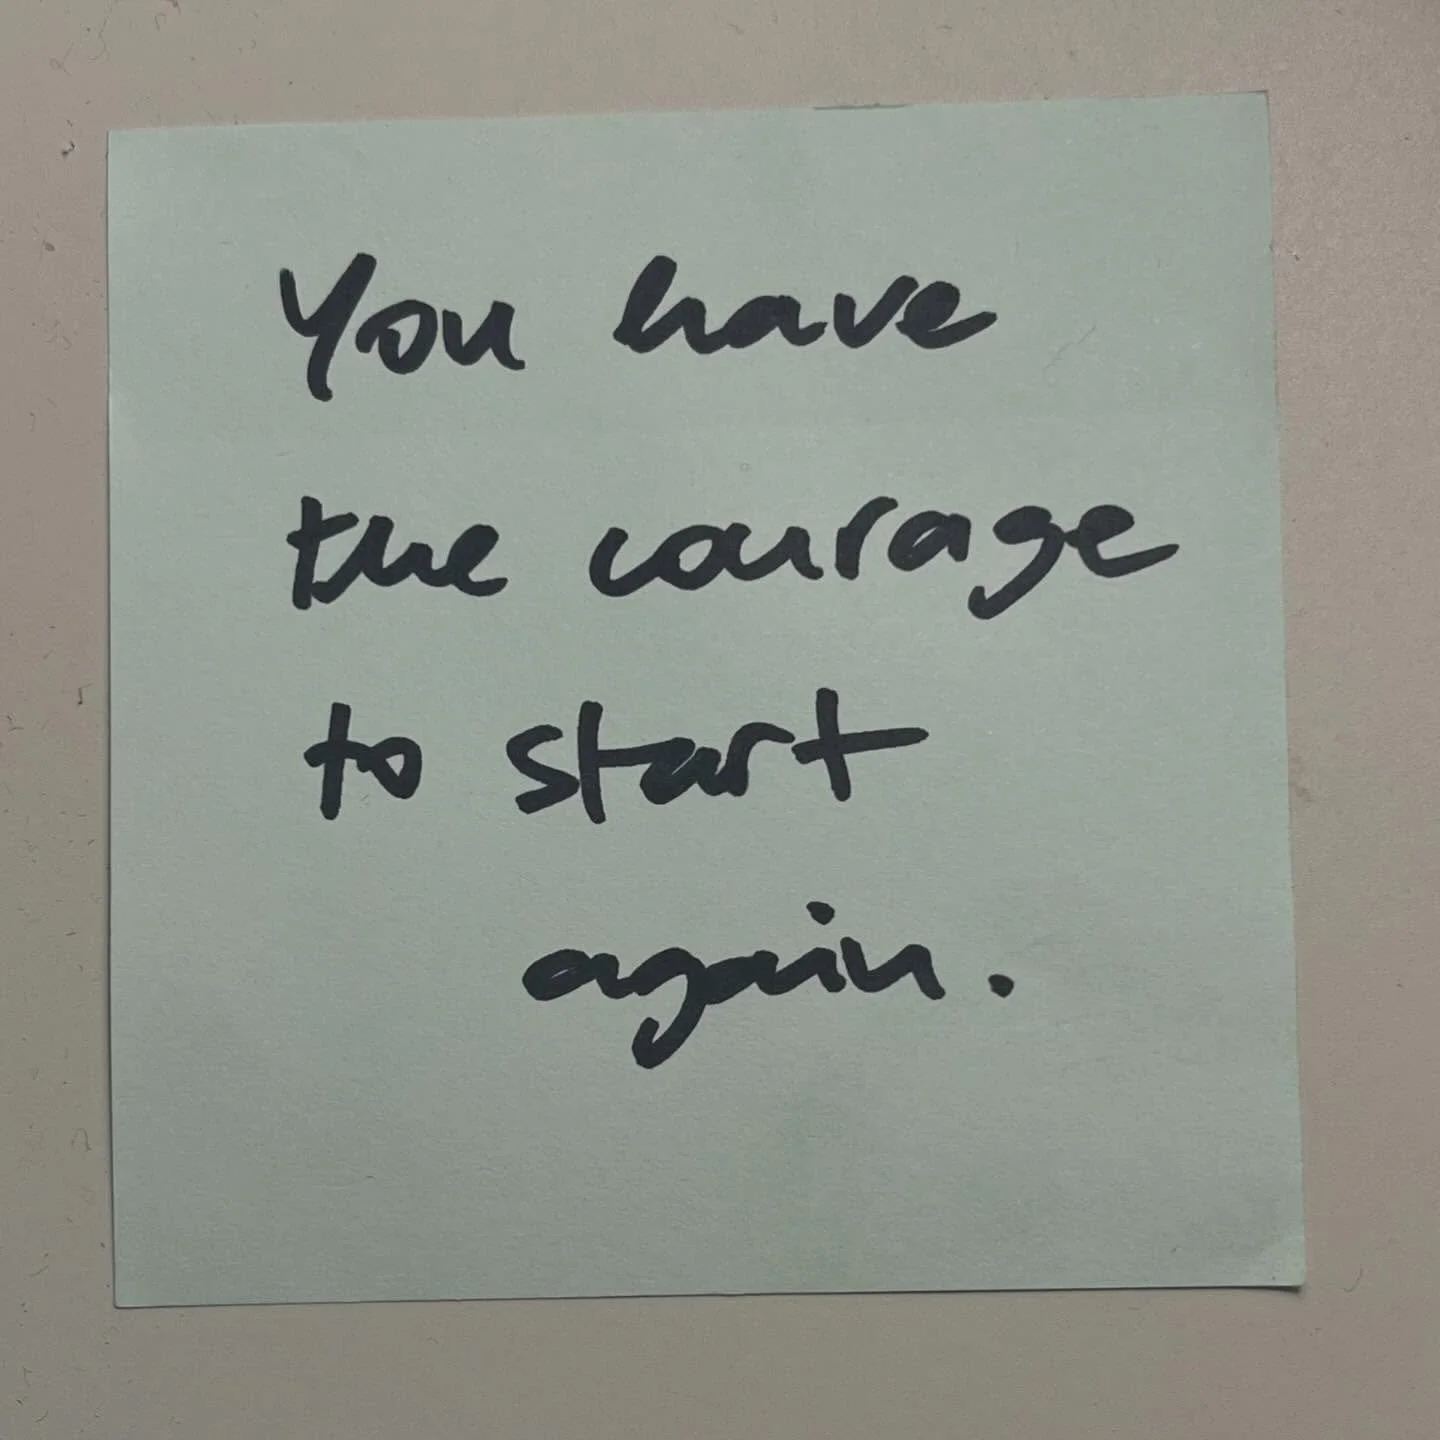 You have
the courage
to start
again.